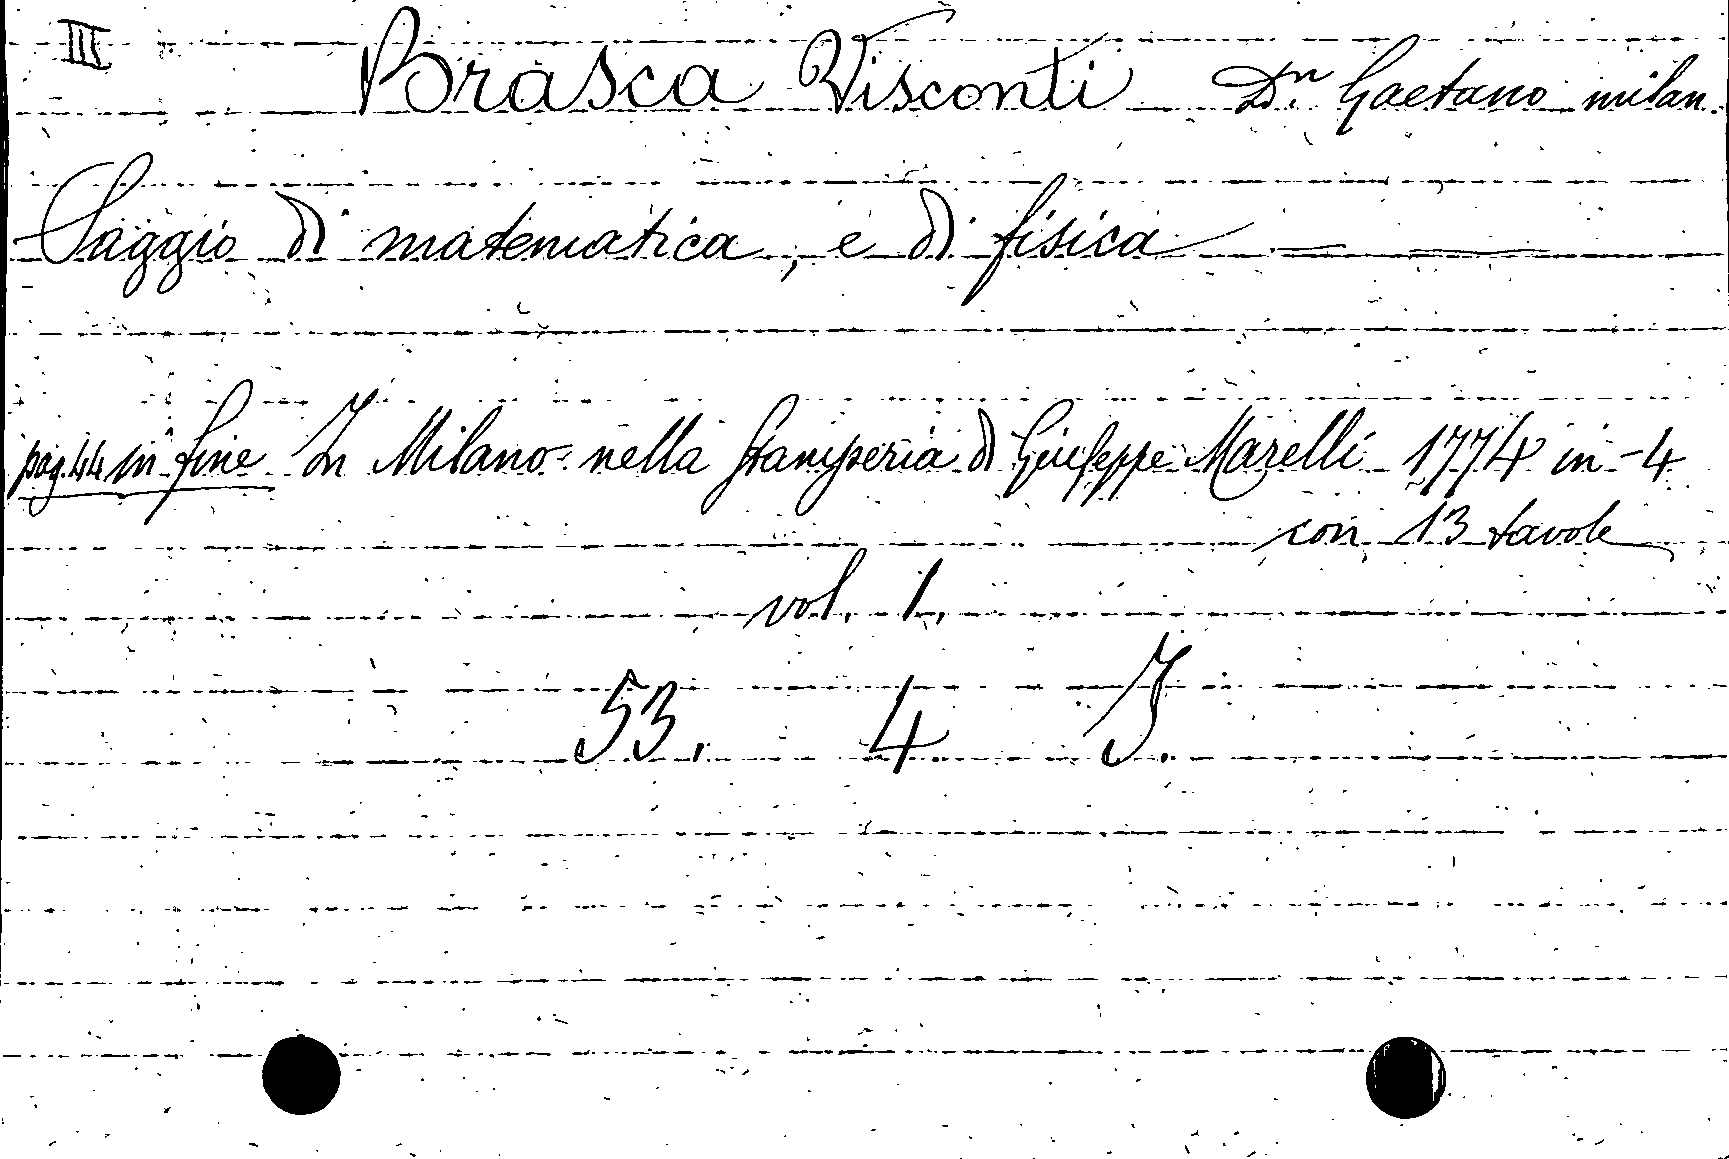 III Brasca Visconti Dn. Gaetano milan.
Saggio di matematica, e di fisica
pag. 44 in fine In Milano nella Stamperia di Giuseppe Marelli 1774 in-4
con 13 tavole
vol. 1.
53. 4 J.